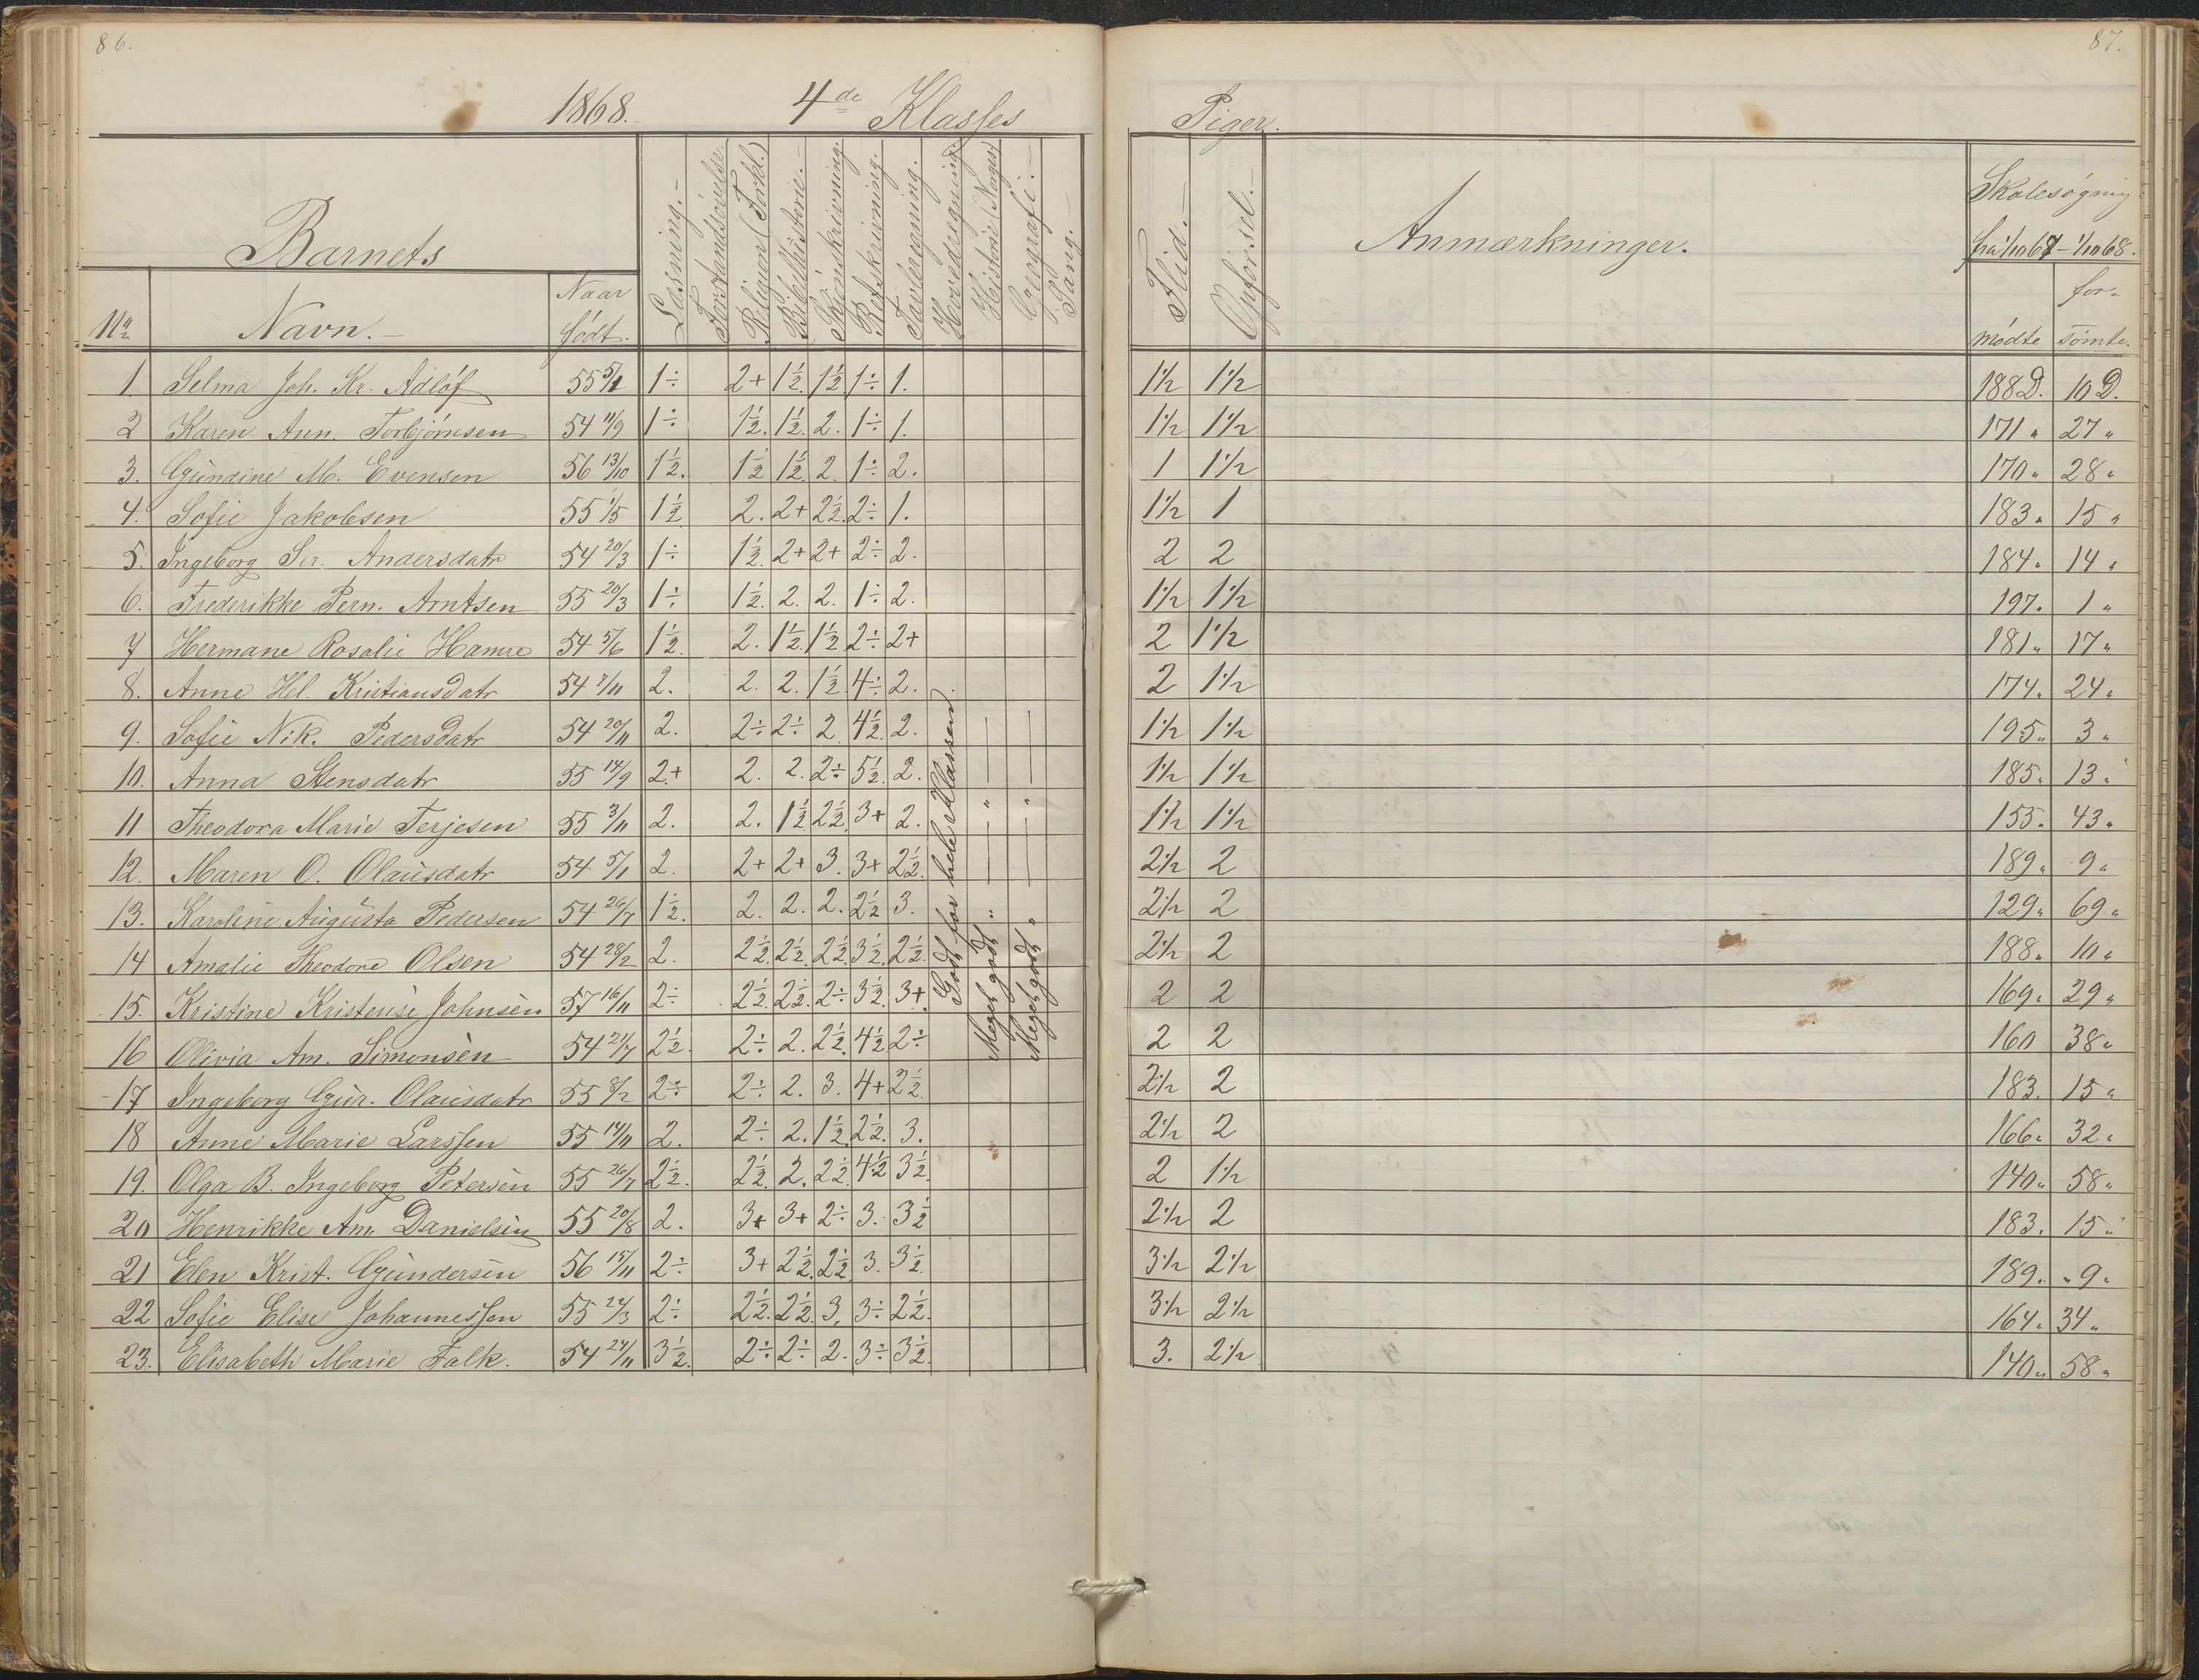 86.
87.
1868. 4de Klasses
Piger.
Barnets
No
Navn.
Naar født.
Læsning.
Forstandsøvelse.
Religion (Forkl.)
Bibelhistorie.
Skjønskrivning.
Retskrivning.
Tavleregning.
Hovedregning.
Historie (Norges)
Geografi.
Sang.
Flid.
Opførsel.
Anmærkninger.
Skolesøgning
fra 1/10 67 - 1/10 68.
mødte
for-
sømte.
1. Selma Joh. Kr. Adlöf 55 1÷ 2+ 1½ 1½ 1÷ 1. 1½ 1½ 188 D. 10 D.
2 Karen Ann. Torbjörnsen 54 11/9 1÷ 1½. 1½. 2. 1÷ 1. 1½ 1½ 171 " 27 "
3. Gundine M. Evensen 56 13/10 1½. 1½ 1½. 2. 1÷ 2. 1 1½ 170 " 28 "
4. Sofie Jakobsen 55 1/5 1½ 2. 2+ 2½. 2÷ 1. 1½ 1 183 " 15 "
5. Ingeborg Ser. Andersdatr 54 20/3 1÷ 1½. 2+ 2+ 2÷ 2. 2 2 184 " 14 "
6. Frederikke Pern. Arntsen 55 20/3 1÷ 1½. 2. 2. 1÷ 2. 1½ 1½ 197. 1 "
7 Hermane Rosalie Hamre 54 5/6 1½. 2. 1½. 1½ 2÷ 2+ 2 1½ 181 " 17 "
8. Anne Hel. Kristiansdatr 54 7/11 2. 2. 2. 1½. 4÷ 2. 2 1½ 174. 24 "
9. Sofie Nik. Pedersdatr 54 20/11 2. 2÷ 2÷ 2 4½. 2. 1½ 1½ 195 " 3 "
10. Anna Stensdatr 55 14/9 2+ 2. 2. 2÷ 5½. 2. 1½ 1½ 185 " 13 "
11 Theodora Marie Terjesen 55 3/11 2. 2. 1½ 2½. 3+ 2. 1½ 1½ 155. 43 "
12. Maren O. Olausdatr 54 5/1 2. 2+ 2+ 3. 3+ 2½. 2½ 2 189 " 9 "
13. Karoline Augusta Pedersen 54 26/7 1½. 2. 2. 2. 2½ 3. 2½ 2 129 " 69 "
14 Amalie Theodore Olsen 54 28/2 2. 2½ 2½. 2½. 3½. 2½. 2½ 2 188 " 10 "
15. Kristine Kristense Johnsen 57 16/11 2÷ 2½. 2½. 2÷ 3½. 3+. 2 2 169 " 29 "
16 Olivia Am. Simonsen 54 21/7 2½. 2÷ 2. 2½. 4½ 2÷ 2 2 160 38 "
17 Ingeborg Gur. Olausdatr 55 8/2 2÷ 2÷ 2. 3. 4+ 2½. 2½ 2 183. 15 "
18 Anne Marie Larssen 55 14/11 2. 2÷ 2. 1½. 2½. 3. 2½ 2 166 " 32 "
19. Olga B. Ingeborg Petersen 55 26/7 2½. 2½. 2. 2½. 4½ 3½. 2 1½ 140 " 58 "
20 Henrikke Am. Danielsen 55 20/8 2. 3+ 3+ 2÷ 3. 3½ 2½ 2 183. 15 "
21 Elen Krist. Gundersen 56 15/11 2÷ 3+ 2½. 2½ 3. 3½. 3½ 2½ 189. " 9 "
22 Sofie Elise Johannessen 55 22/3 2÷ 2½. 2½. 3. 3÷ 2½. 3½ 2½ 164 " 34 "
23. Elisabeth Marie Falk. 54 24/11 3½. 2÷ 2÷ 2. 3÷ 3½. 3. 2½ 140 " 58 "
Godt for hele Klassen
Meget godt " — " —
Meget godt " — " —